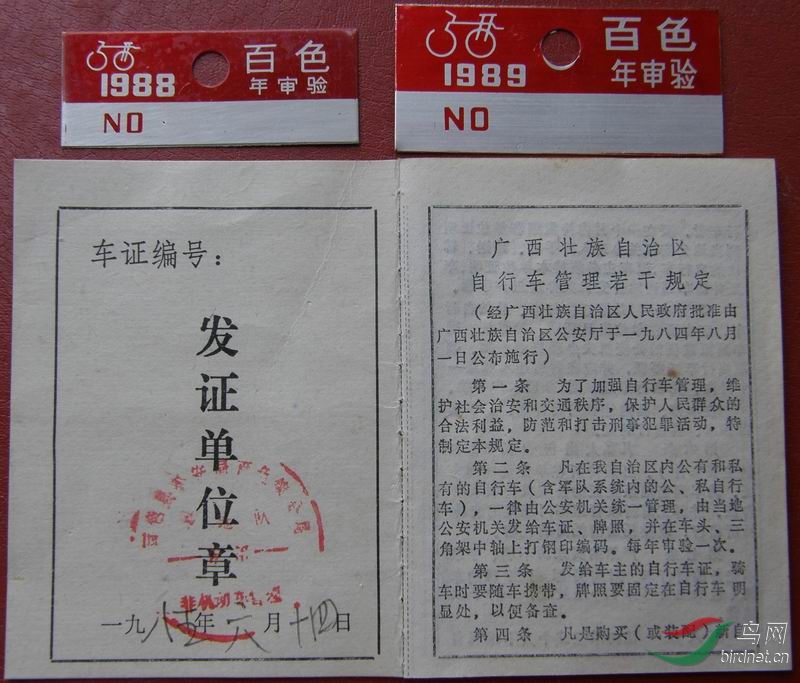 百色
1988 年审验
NO
百色
1989 年审验
NO
车证编号：
发证单位章
非机动车
一九八五年 六月十四日
广西壮族自治区
自行车管理若干规定
（经广西壮族自治区人民政府批准由
广西壮族自治区公安厅于一九八四年八月
一日公布施行）
第一条 为了加强自行车管理，维
护社会治安和交通秩序，保护人民群众的
合法利益，防范和打击刑事犯罪活动，特
制定本规定。
第二条 凡在我自治区内公有和私
有的自行车（含军队系统内的公、私自行
车），一律由公安机关统一管理，由当地
公安机关发给车证、牌照，并在车头、三
角架中轴上打钢印编码。每年审验一次。
第三条 发给车主的自行车证，骑
车时要随车携带，牌照要固定在自行车明
显处，以便备查。
第四条 凡是购买（或装配）新自
鸟网
birdnet.cn